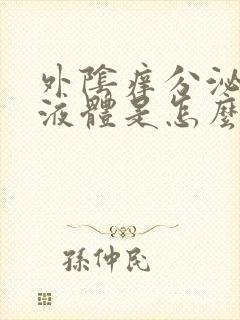 外陰痒分泌
液體是怎麼
孫仲民